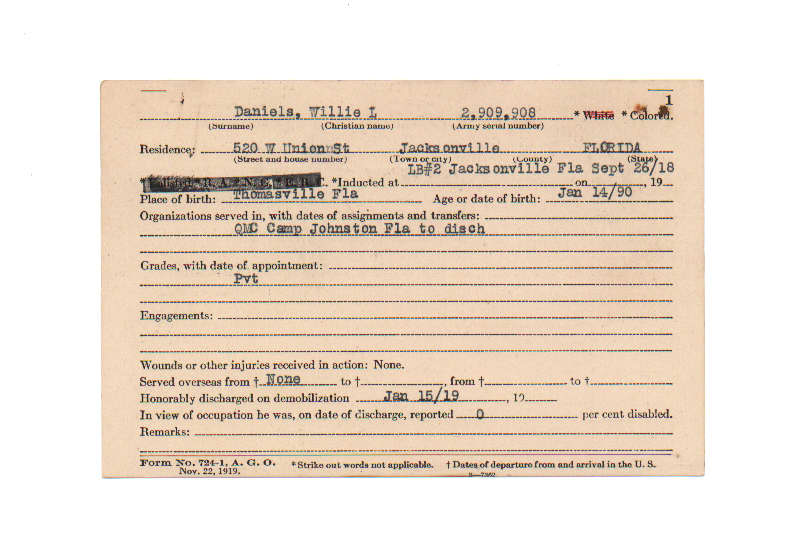 1
Daniels, Willie L 2,909,908 * White * Colored.
(Surname) (Christian name) (Army serial number)
Residence: 520 W Union St Jacksonville FLORIDA
(Street and house number) (Town or city) (County) (State)
LB#2 Jacksonville Fla Sept 26/18
*Inducted at on , 19
Place of birth: Thomasville Fla Age or date of birth: Jan 14/90
Organizations served in, with dates of assignments and transfers:
QMC Camp Johnston Fla to disch
Grades, with date of appointment:
Pvt
Engagements:
Wounds or other injuries received in action: None.
Served overseas from † None to † , from † to †
Honorably discharged on demobilization Jan 15/19 , 19
In view of occupation he was, on date of discharge, reported 0 per cent disabled.
Remarks:
Form No. 724-1, A. G. O. *Strike out words not applicable. † Dates of departure from and arrival in the U. S.
Nov. 22, 1919.